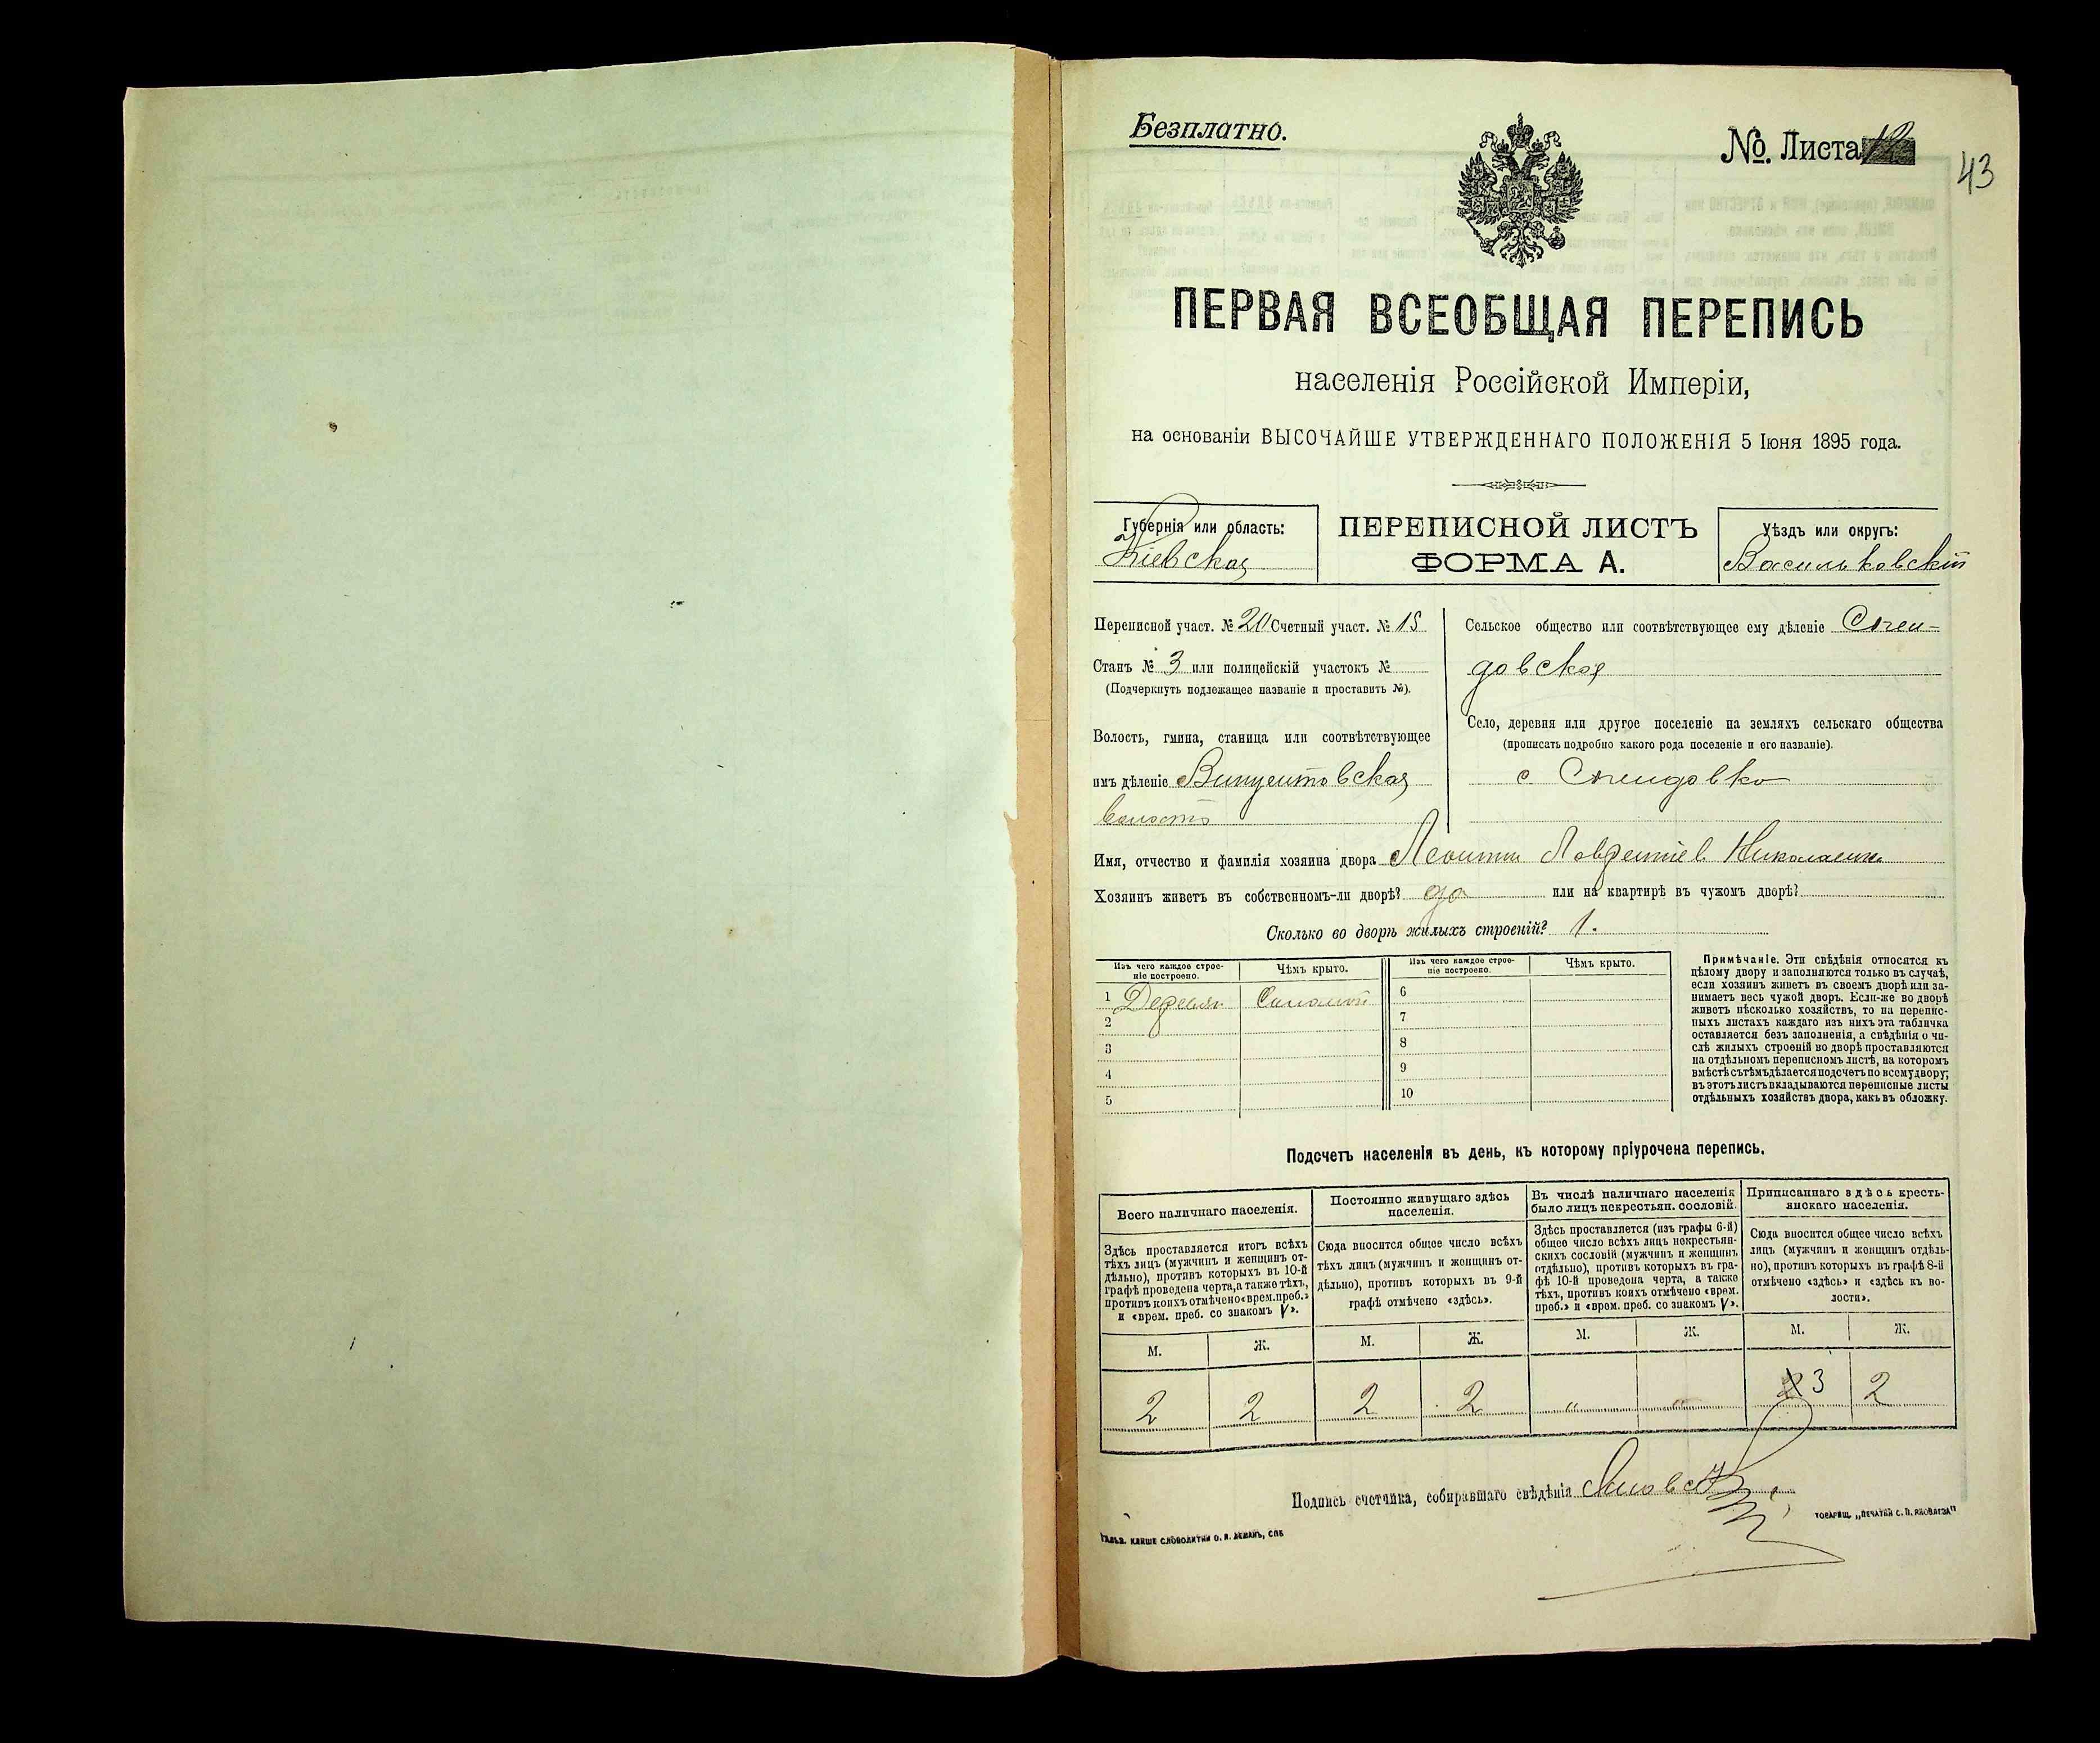 Безплатно.
No. Листа 12
43
ПЕРВАЯ ВСЕОБЩАЯ ПЕРЕПИСЬ
населенія Россійской Имперіи,
на основаніи ВЫСОЧАЙШЕ УТВЕРЖДЕННАГО ПОЛОЖЕНІЯ 5 Іюня 1895 года.
Губернія или область:
Кіевская
ПЕРЕПИСНОЙ ЛИСТЪ
ФОРМА А.
Уѣздъ или округъ:
Васильковскій
Переписной участ. № 20 Счетный участ. № 15
Станъ № 3 или полицейскій участокъ №
(Подчеркнуть подлежащее названіе и проставить №).
Волость, гмина, станица или соотвѣтствующее
имъ дѣленіе Винцентовская
волость
Сельское общество или соотвѣтствующее ему дѣленіе
довская
Село, деревня или другое поселеніе на земляхъ сельскаго общества
(прописать подробно какого рода поселеніе и его названіе).
с
Имя, отчество и фамилія хозяина двора Леонтій Лаврентіев
Хозяинъ живетъ въ собственномъ-ли дворѣ? да или на квартирѣ въ чужомъ дворѣ?
Сколько во дворѣ жилыхъ строеній? 1.
Изъ чего каждое строе-
ніе построено.
Чѣмъ крыто.
Изъ чего каждое строе-
ніе построено.
Чѣмъ крыто.
1 Деревян Соломой 6
2 7
3 8
4 9
5 10
Примѣчаніе. Эти свѣдѣнія относятся къ
цѣлому двору и заполняются только въ случаѣ,
если хозяинъ живетъ въ своемъ дворѣ или за-
нимаетъ весь чужой дворъ. Если-же во дворѣ
живетъ нѣсколько хозяйствъ, то на перепис-
ныхъ листахъ каждаго изъ нихъ эта табличка
оставляется безъ заполненія, а свѣдѣнія о чи-
слѣ жилыхъ строеній во дворѣ проставляются
на отдѣльномъ переписномъ листѣ, на которомъ
вмѣстѣ съ тѣмъ дѣлается подсчетъ по всему двору;
въ этотъ листъ вкладываются переписные листы
отдѣльныхъ хозяйствъ двора, какъ въ обложку.
Подсчетъ населенія въ день, къ которому пріурочена перепись.
Всего наличнаго населенія.
Здѣсь проставляется итогъ всѣхъ
тѣхъ лицъ (мужчинъ и женщинъ от-
дѣльно), противъ которыхъ въ 10-й
графѣ проведена черта, а также тѣхъ,
противъ коихъ отмѣчено «врем. преб.»
и «врем. преб. со знакомъ V».
Постоянно живущаго здѣсь
населенія.
Сюда вносится общее число всѣхъ
тѣхъ лицъ (мужчинъ и женщинъ от-
дѣльно), противъ которыхъ въ 9-й
графѣ отмѣчено «здѣсь».
Въ числѣ наличнаго населенія
было лицъ некрестьян. сословій.
Здѣсь проставляется (изъ графы 6-й)
общее число всѣхъ лицъ некрестьян-
скихъ сословій (мужчинъ и женщинъ
отдѣльно), противъ которыхъ въ гра-
фѣ 10-й проведена черта, а также
тѣхъ, противъ коихъ отмѣчено «врем.
преб.» и «врем. преб. со знакомъ V».
Приписаннаго здѣсь кресть-
янскаго населенія.
Сюда вносится общее число всѣхъ
лицъ (мужчинъ и женщинъ отдѣль-
но), противъ которыхъ въ графѣ 8-й
отмѣчено «здѣсь» и «здѣсь въ во-
лости».
М. Ж. М. Ж. М. Ж. М. Ж.
2 2 2 2 " " 3 2
Подпись счетчика, собиравшаго свѣдѣнія
КЛИШЕ СЛОВОЛИТНИ О. И. ЛЕМАНЪ, СПБ
ТОВАРИЩ. „ПЕЧАТНИ С. П. ЯКОВЛЕВА"